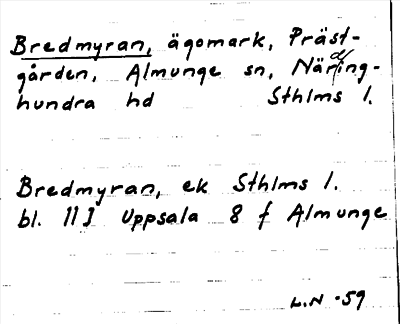 Bredmyran, ägomark, Präst-
gården, Almunge sn, Närding-
hundra hd Sthlms l.
Bredmyran, ek Sthlms l.
bl. 11 I Uppsala 8 f Almunge
L.N -59